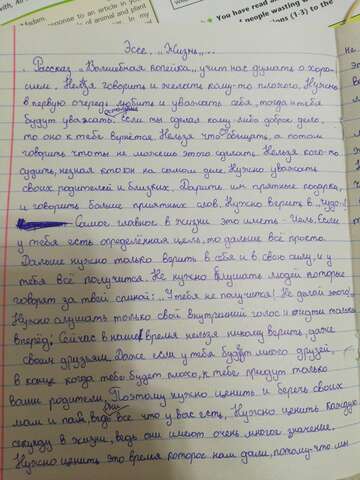 Madam
response to an article in your
of animal and plant
in. My
with. Ali
You have read an
people wasting w
(1-3) to the
Эссе. „Жизнь"...
Рассказ „Волшебная копейка" учит нас думать о хоро-
шем. Нельзя говорить и желать кому-то плохого. Нужно
в первую очередь любить и уважать себя, тогда и тебя
будут уважать. Если ты сделал кому-либо доброе дело,
то оно к тебе вернётся. Нельзя что обещать, а потом
говорить что ты не можешь этого сделать. Нельзя кого-то
судить, не зная кто он на самом деле. Нужно уважать
своих родителей и близких. Дарить им приятные подарки,
и говорить больше приятных слов. Нужно верить в „чудо".
Самое главное в жизни это иметь - цель. Если
у тебя есть определённая цель, то дальше всё просто.
Дальше нужно только верить в себя и в свою силу, и у
тебя всё получится. Не нужно слушать людей которые
говорят за твоей спиной: „У тебя не получится! Не делай этого!"
Нужно слушать только свой внутренний голос и идти только
вперёд. Сейчас в наше время нельзя никому верить, даже
своим друзьям. Даже если у тебя будут много друзей,
в конце когда тебе будет плохо, к тебе придут только
ваши родители. Поэтому нужно ценить и беречь своих
мам и пап, ведь они все что у вас есть. Нужно ценить каждую
секунду в жизни, ведь они имеют очень многое значение.
Нужно ценить это время которое нам дали, потому-что мы